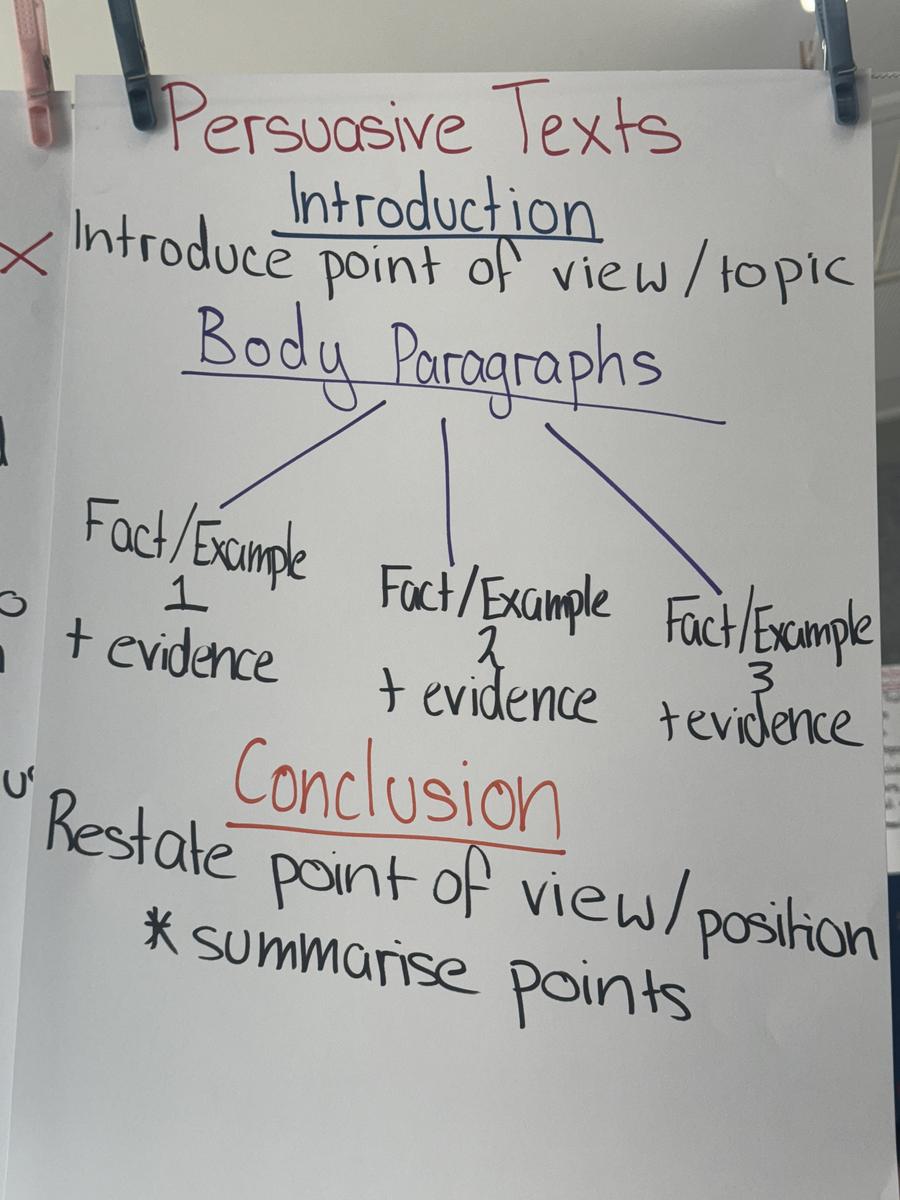 Persuasive Texts
Introduction
Introduce point of view/topic
Body Paragraphs
Fact/Example
1
+ evidence
Fact/Example
2
+ evidence
Fact/Example
3
+ evidence
Conclusion
Restate point of view/position
* summarise points